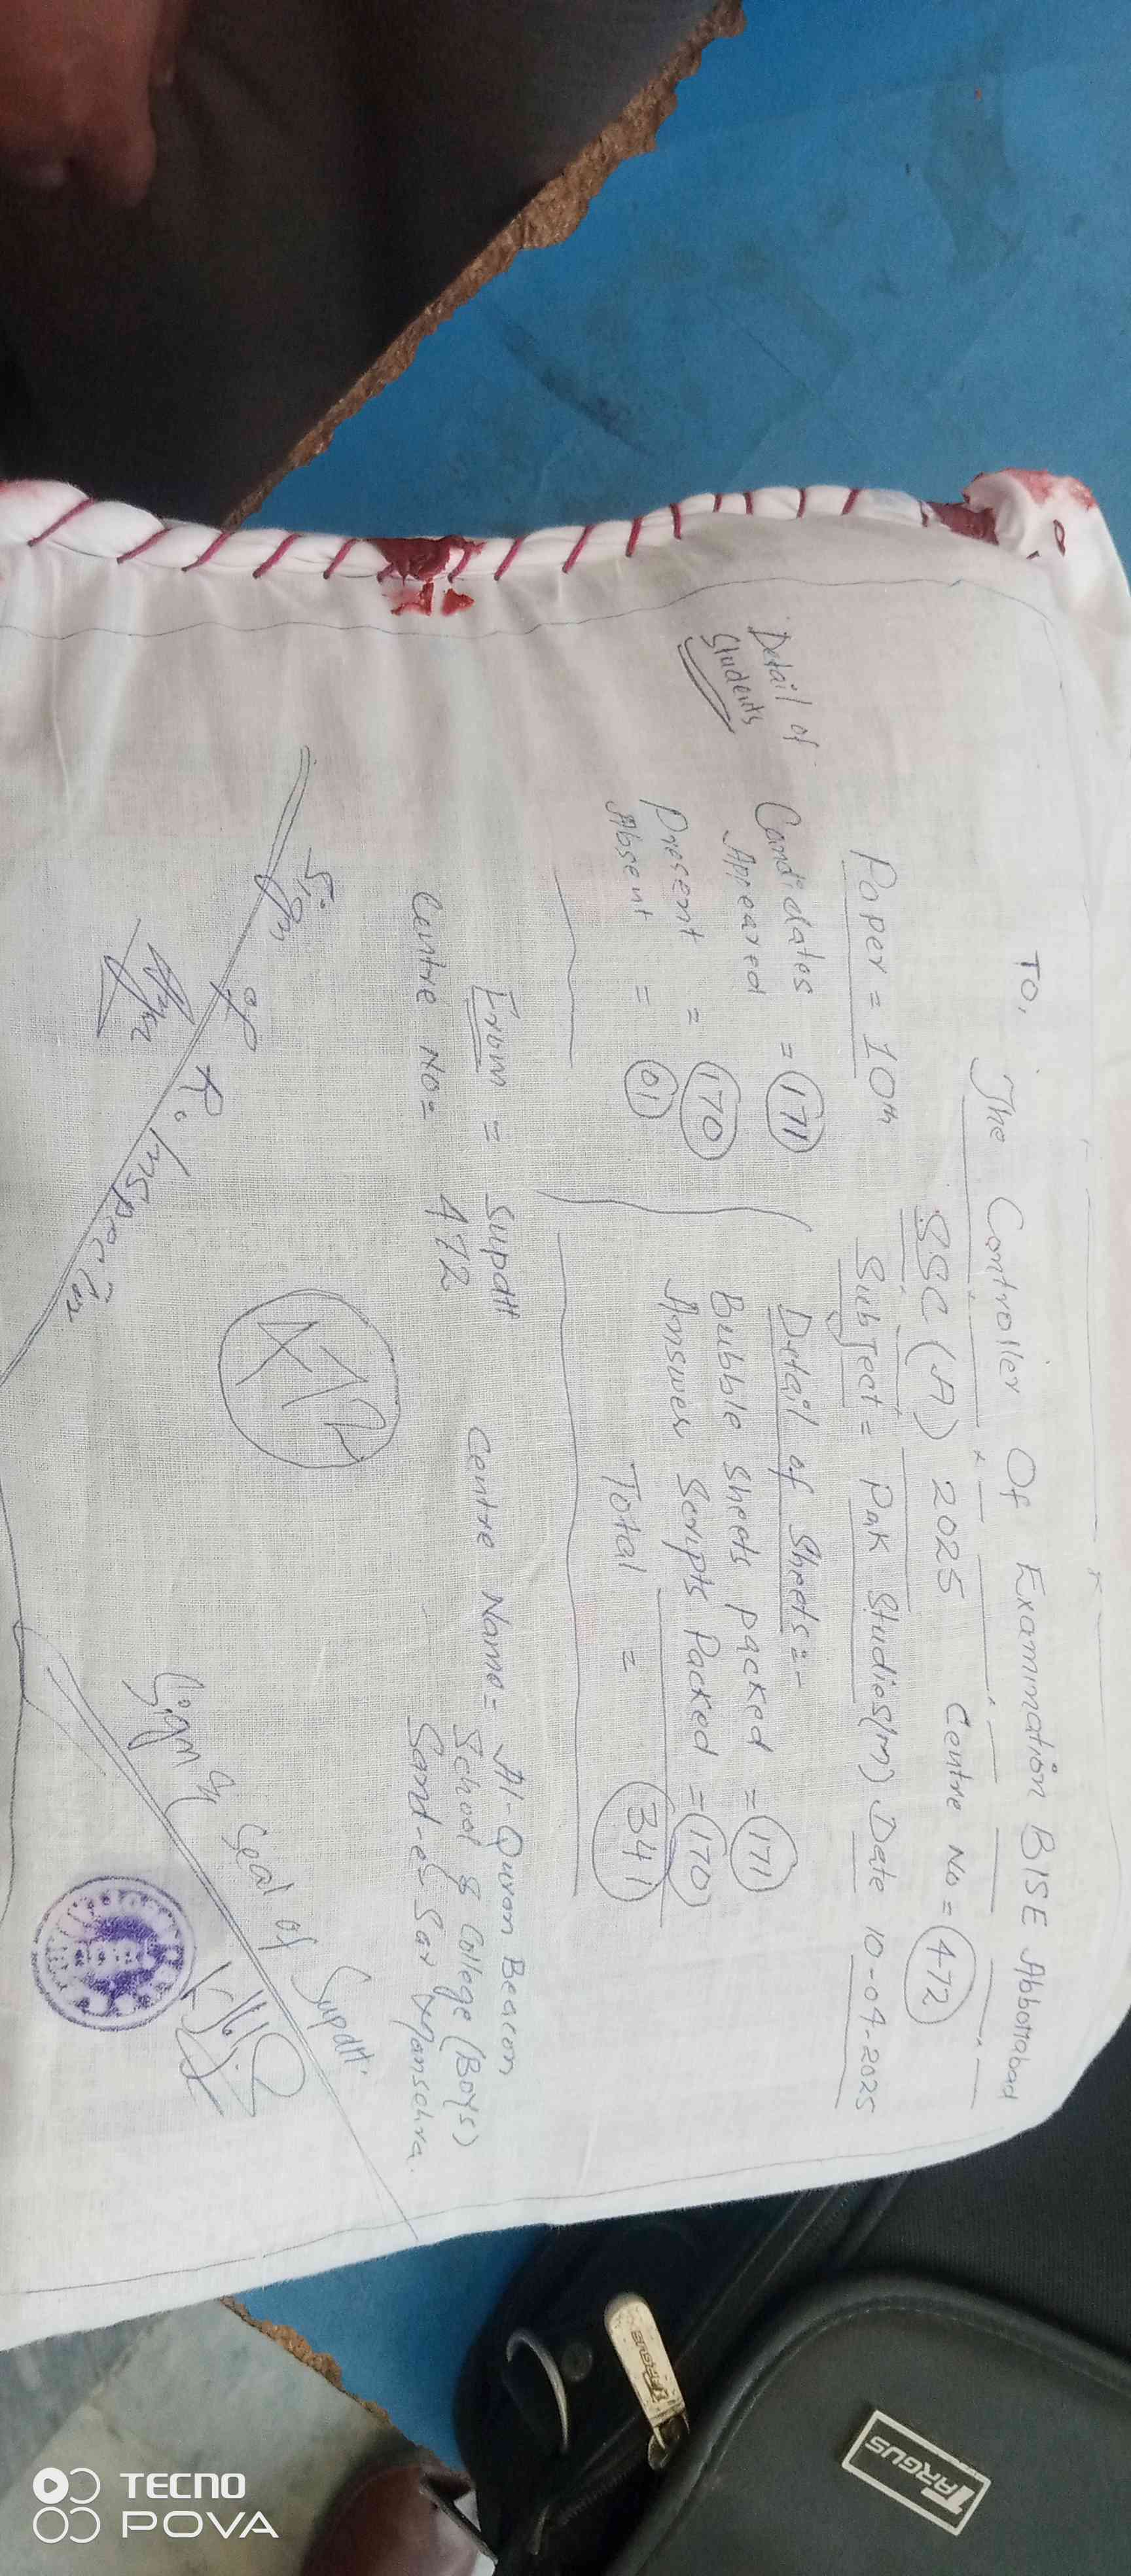 TO,
The Controller Of Examination BISE Abbottabad
SSC (A) 2025 Centre No = 472
Paper = 10th Subject = Pak Studies(M) Date 10-04-2025
Detail of
Students
Candidates
Appeared = 171
Present = 170
Absent = 01
Detail of Sheets:-
Bubble Sheets packed = 171
Answer Scripts Packed = 170
Total = 341
From = Supdtt
Centre No = 472
Centre Name = Al-Quran Beacon
School & College (Boys)
Mansehra.
472
Sign of R. Inspector
Sign & Seal of Supdtt.
TARGUS
TARGUS
TECNO
POVA